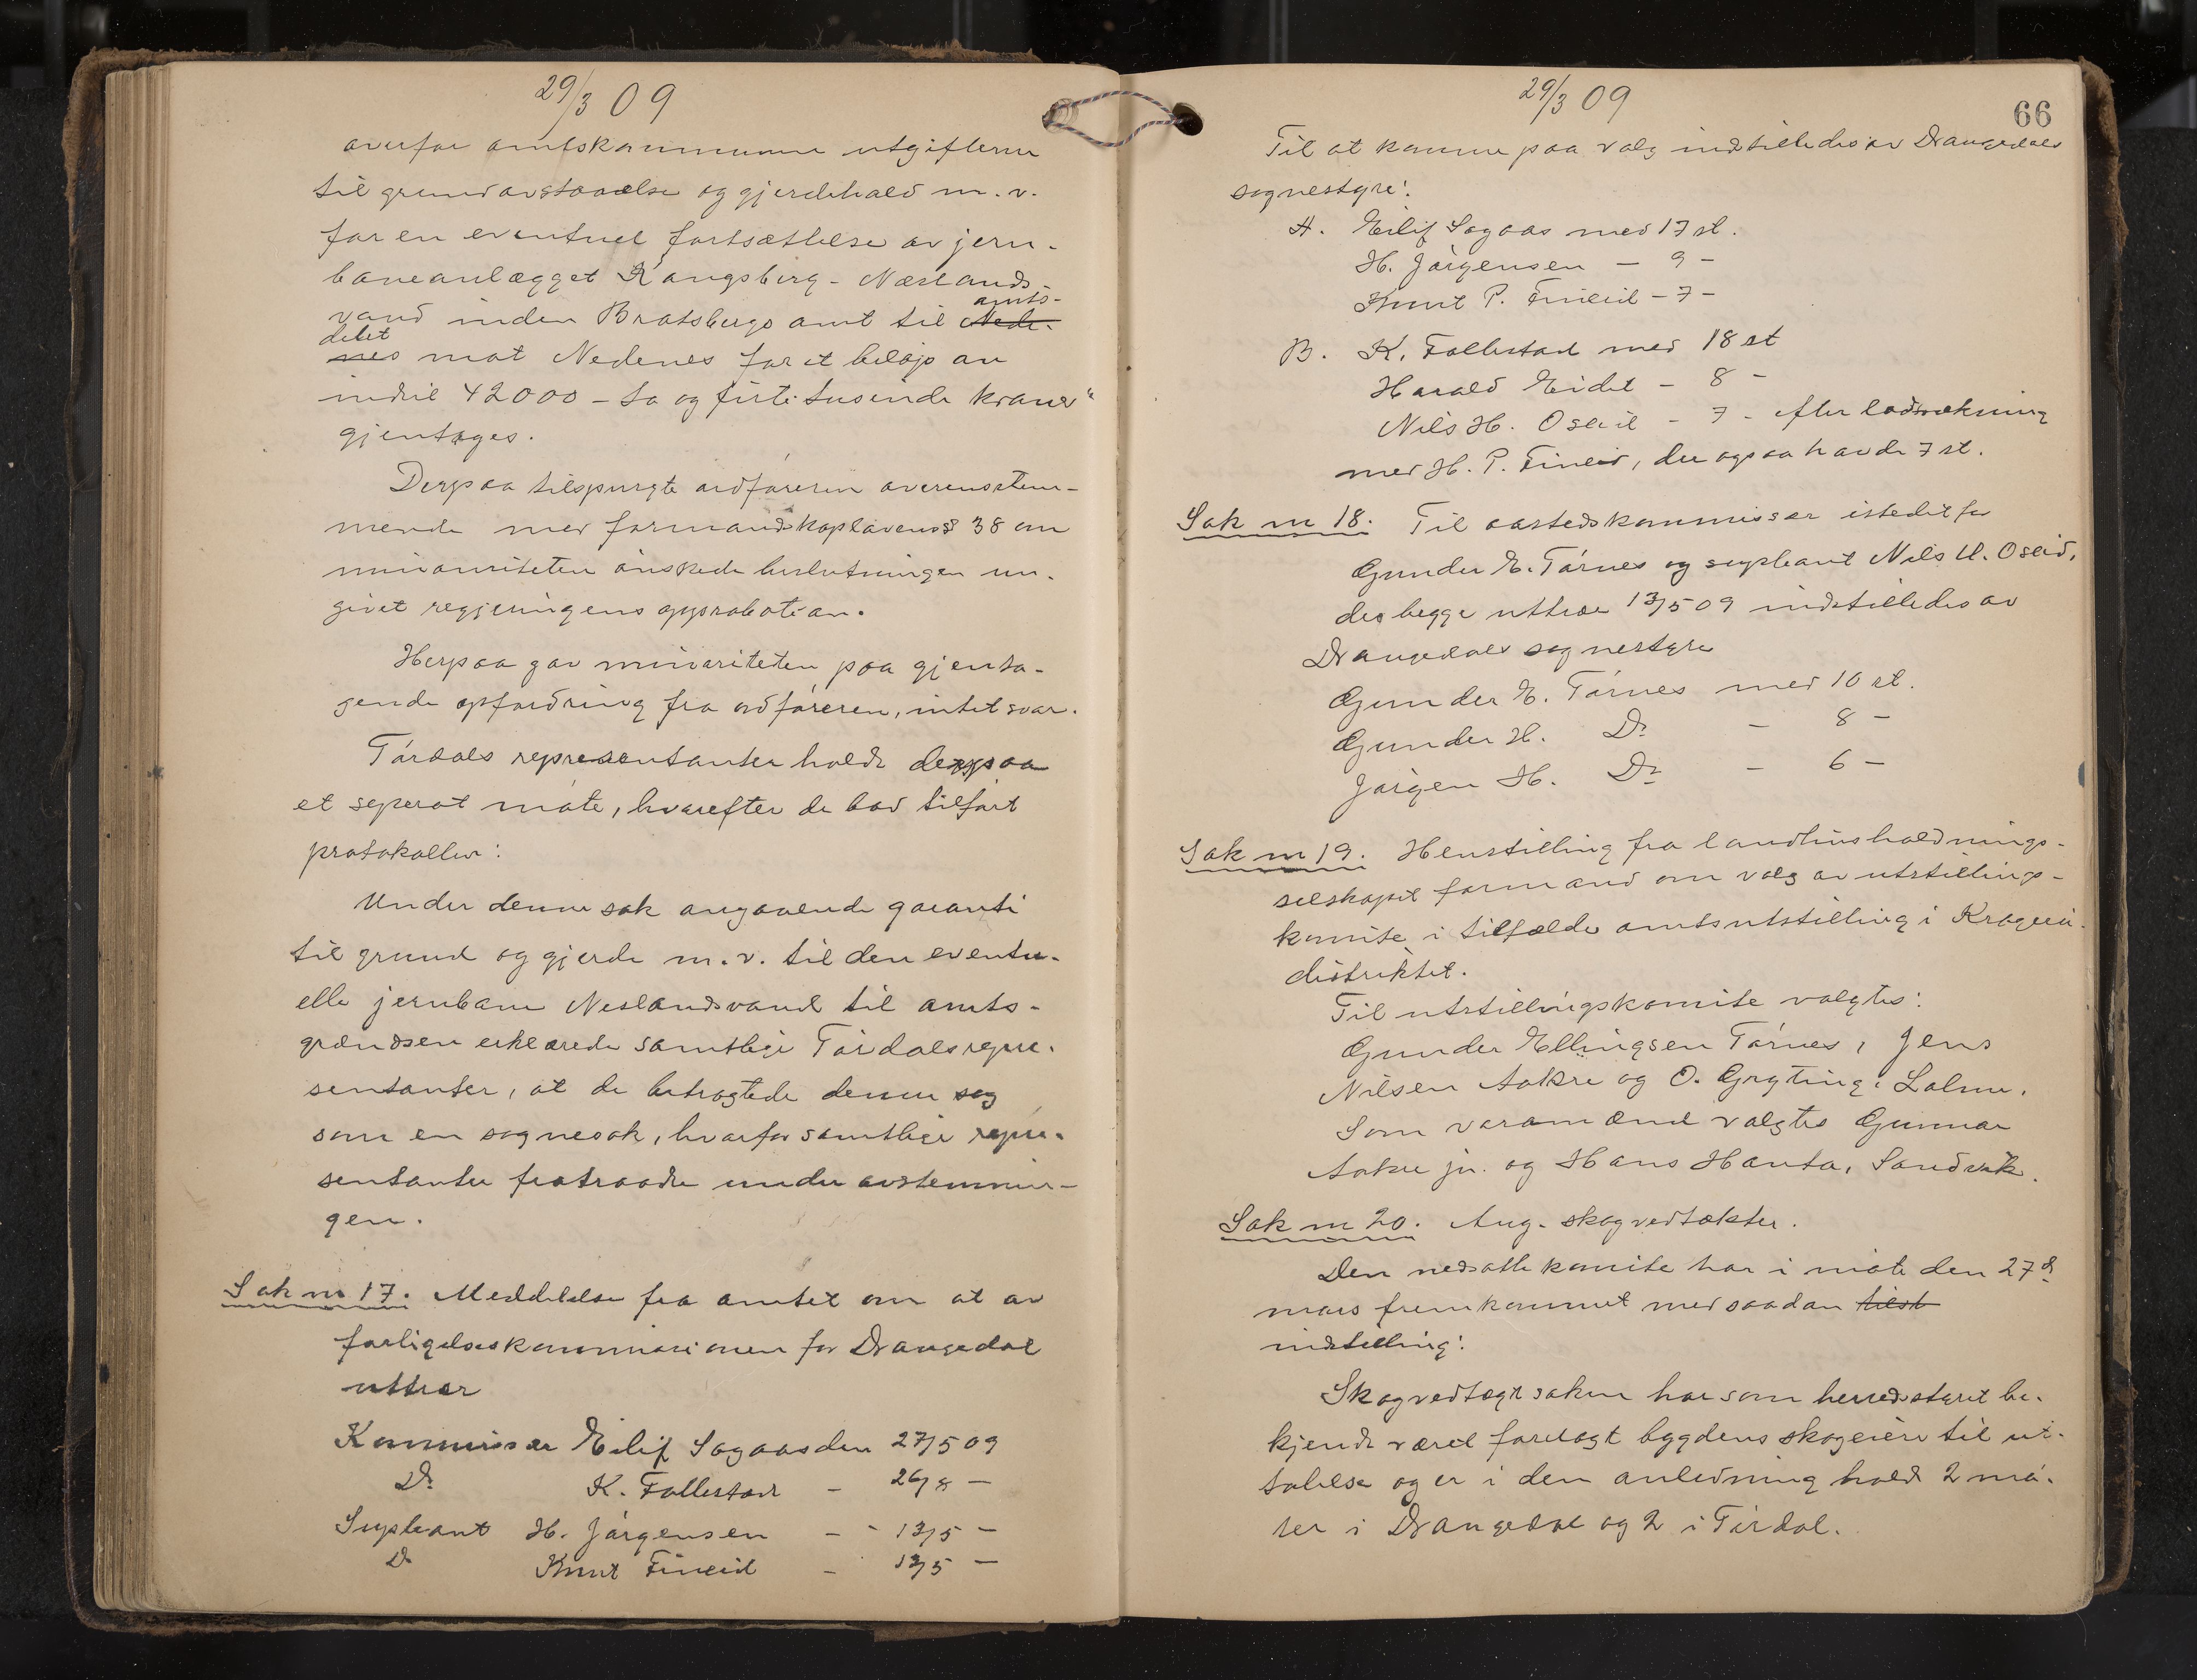 29/3 09
overfor amtskommunen utgifterne
til grundavstaaelse og gjerdehald m. v.
for en eventuel fortsættelse av jern-
baneanlægget Kongsberg - Næslands-
amts-
vand inden Bratsbergs amt til Nede-
delet
nes mot Nedenes for et beløp av
indtil 42000 - to og firti tusinde kroner"
gjentages.
Derpaa tilspurgte ordføreren overensstem-
mende med formandskapslovens § 38 om
minoriteten ønskede beslutningen un-
givet regjeringens approbation.
Herpaa gav minoriteten, paa gjenta-
gende opfordring fra ordføreren, intet svar.
Tørdals representanter holdt derpaa
et seperat møte, hvorefter de bad tilført
protokollen:
Under denne sak angaaende garanti
til grund og gjerde m. v. til den eventu-
elle jernbane Neslandsvand til amts-
grændsen erklærede samtlige Tørdals repre-
sentanter, at de betragtede denne sag
som en sognesak, hvorfor samtlige repre-
sentanter fratraadte under avstemnin-
gen.
Sak nr 17. Meddelelse fra amtet om at av
forligelseskommissionen for Drangedal
uttrær
Kommissær Eilif Sogaas den 27/5 09
Do K. Follestad - 26/8 -
Supleant H. Jørgensen - - 13/5 -
Do Knut Fineid - 13/5 -
29/3 09
66
Til at komme paa valg indstilledes av Drangedals
sognestyre:
A. Eilif Sogaas med 17 st.
H. Jørgensen - 9 -
Knut P. Fineid - 7 -
B. K. Follestad med 18 st
Harald Eidet - 8 -
Nils H. Oseid - 7 - efter lodtrækning
med H. P. Fineid, der ogsaa havde 7 st.
Sak nr 18. Til aastedskommissær istedetfor
Gunder E. Tørnes og supleant Nils H. Oseid,
der begge uttrær 13/5 09 indstilledes av
Drangedals sognestyre
Gunder E. Tørnes med 10 st.
Gunder H. Do - 8 -
Jørgen H. Do - 6 -
Sak nr 19. Henstilling fra landhusholdnings-
selskapet formand om valg av utstillings-
komite i tilfælde amtsutstilling i Kragerø-
distriktet.
Til utstillingskomite valgtes:
Gunder Ellingsen Tørnes, Jens
Nilsen Aakre og O. Gryting, Lolme.
Som varamænd valgtes Gunnar
Aakre jr. og Hans Hanto, Sandvik.
Sak nr 20. Ang. skogvedtækter.
Den nedsatte komite har i møte den 27de
mars fremkommet med saadan tilst
indstilling:
Skogvedtægtsaken har som herredsstyret be-
kjendt været forelagt bygdens skogeiere til ut-
talelse og er i den anledning holdt 2 mø-
ter i Drangedal og 2 i Tørdal.